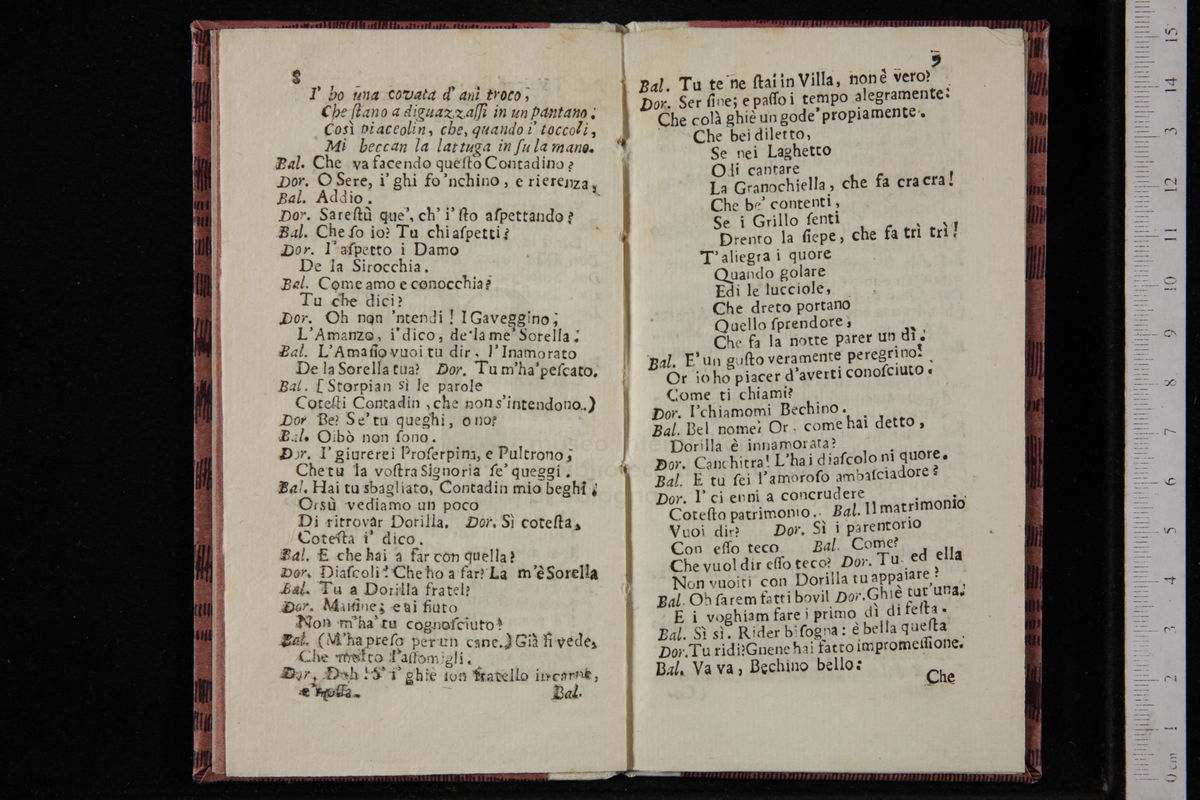 8
I' ho una covata d' ani troco,
Che ſtano a diguazzaſſi in un pantano;
Così piaceolin, che, quando i' toccoli,
Mi beccan la lattuga in ſu la mano.
Bal. Che va facendo queſto Contadino?
Dor. O Sere, i' ghi fo 'nchino, e rierenza,
Bal. Addio.
Dor. Sareſtù que', ch' i' ſto aſpettando?
Bal. Che ſo io? Tu chi aſpetti?
Dor. I' aſpetto i Damo
De la Sirocchia.
Bal. Come amo e conocchia?
Tu che dici?
Dor. Oh non 'ntendi! I Gaveggino;
L'Amanzo, i' dico, de la me' Sorella;
Bal. L'Amaſio vuoi tu dir, l'Inamorato
De la Sorella tua? Dor. Tu m'ha' peſcato.
Bal. [Storpian sì le parole
Coteſti Contadin, che non s'intendono.)
Dor Be? Se' tu queghi, o no?
Bal. Oibò non ſono.
Dor. I' giurerei Proſerpina, e Pultrono;
Che tu la voſtra Signoria ſe' queggi.
Bal. Hai tu sbagliato, Contadin mio beghi;
Orsù vediamo un poco
Di ritrovar Dorilla. Dor. Sì coteſta,
Coteſta i' dico.
Bal. E che hai a far con quella?
Dor. Diaſcoli! Che ho a far? La m'è Sorella
Bal. Tu a Dorilla fratel?
Dor. Maiſine; e ai fiuto
Non m'ha' tu cognoſciuto?
Bal. (M'ha preſo per un cane.) Già ſi vede,
Che molto l'aſſomigli.
Dor. Doh! S' i' ghiè ſon fratello in carne,
Bal.
9
Bal. Tu te ne ſtai in Villa, non è vero?
Dor. Ser ſine; e paſſo i tempo alegramente:
Che colà ghiè un gode' propiamente.
Che bei diletto,
Se nei Laghetto
Odi cantare
La Granochiella, che fa cra cra!
Che be' contenti,
Se i Grillo ſenti
Drento la ſiepe, che fa trì trì!
T'aliegra i quore
Quando golare
Edi le lucciole,
Che dreto portano
Quello ſprendore,
Che fa la notte parer un dì.
Bal. E' un guſto veramente peregrino!
Or io ho piacer d'averti conoſciuto.
Come ti chiami?
Dor. I'chiamomi Bechino.
Bal. Bel nome! Or, come hai detto,
Dorilla è innamorata?
Dor. Canchitra! L'ha i diaſcolo ni quore.
Bal. E tu ſei l'amoroſo ambaſciadore?
Dor. I' ci enni a concrudere
Coteſto patrimonio. Bal. Il matrimonio
Vuoi dir? Dor. Sì i parentorio
Con eſſo teco Bal. Come?
Che vuol dir eſſo teco? Dor. Tu, ed ella
Non vuoiti con Dorilla tu appaiare?
Bal. Oh ſarem fatti bovil Dor. Ghiè tut'una;
E i voghiam fare i primo dì di feſta.
Bal. Sì sì. Rider biſogna: è bella queſta
Dor. Tu ridi? Gnene hai fatto impromeſſione.
Bal. Va va, Bechino bello:
Che